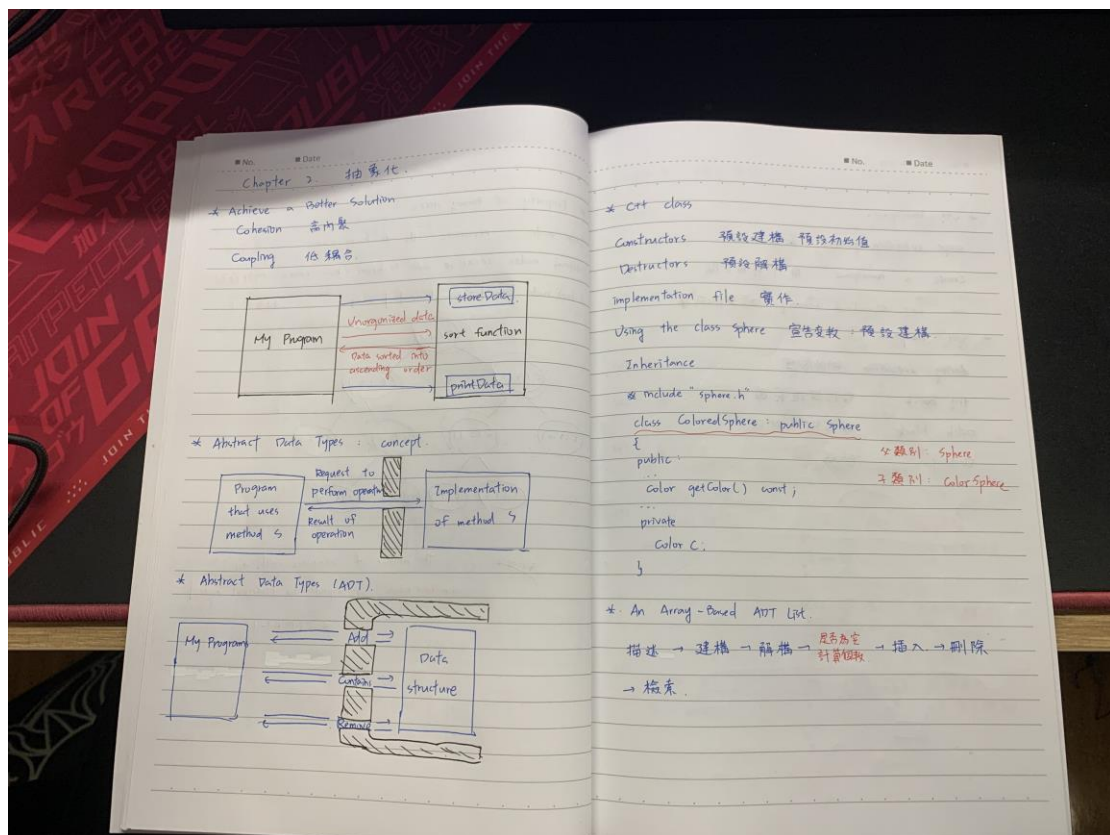 No. Date
Chapter 2. 抽象化.
* Achieve a Better Solution
Cohesion 高內聚
Coupling 低耦合
My Program
storeData
Unorganized data
sort function
Data sorted into
ascending order
printData
* Abstract Data Types : concept.
Program
that uses
method S
Request to
perform operation
Result of
operation
Implementation
of method S
* Abstract Data Types (ADT).
My Program
Add
Contains
Remove
Data
structure
No. Date
* C++ class
Constructors 預設建構.預設初始值
Destructors 預設解構
implementation file 實作.
Using the class Sphere 宣告變數:預設建構
Inheritance
# include "sphere.h"
class ColoredSphere : public Sphere
{
public :
...
color getColor() const ;
...
private
Color C;
}
父類別: Sphere
子類別: ColorSphere
* An Array-Based ADT List.
描述 → 建構 → 解構 → 是否為空 計算個數 → 插入 → 刪除
→ 檢索.
JOIN THE
加入
JOIN THE
OF